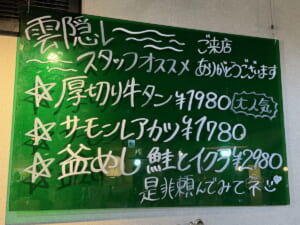 雲隠れ
ご来店
ありがとうございます
スタッフオススメ
☆厚切り牛タン¥1980 大人気
☆サーモンレアカツ¥1780
☆釜めし 鮭とイクラ¥2980
是非頼んでみてネ